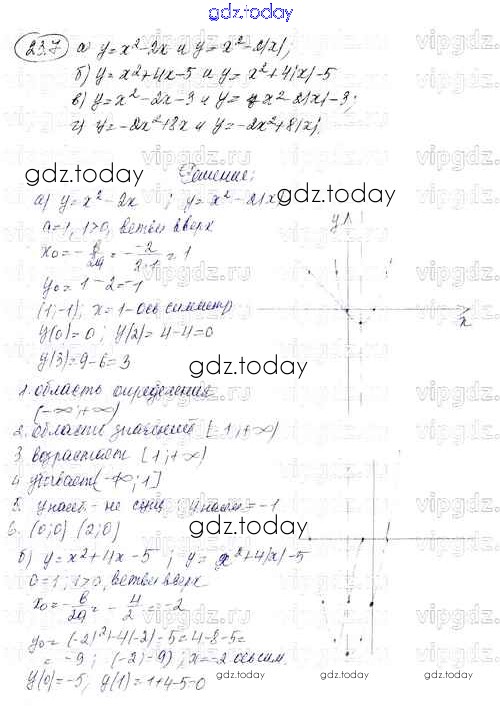 gdz.today
23.7 а) y=x²-2x и y=x²-2|x|;
б) y=x²+4x-5 и y=x²+4|x|-5
в) y=x²-2x-3 и y=x²-2|x|-3;
г) y=-2x²+8x и y=-2x²+8|x|;
Решение:
gdz.today gdz.today
а) y=x²-2x ; y=x²-2|x|
a=1, 1>0, ветви вверх
x₀=-в/2a=--2/2·1=1
y₀=1-2=-1
(1;-1); x=1-ось симметр
y(0)=0; y(2)=4-4=0
y(3)=9-6=3
y
x
gdz.today
1. область определения
(-∞;+∞)
2. область значений [-1;+∞)
3. возрастает [1;+∞)
4. убывает (-∞;1]
5. yнаиб - не сущ; yнаим=-1
6. (0;0) (2;0)
gdz.today
б) y=x²+4x-5 ; y=x²+4|x|-5
a=1; 1>0, ветви вверх
x₀=-в/2a=-4/2=-2
y₀=(-2)²+4(-2)-5=4-8-5=
=-9; (-2;-9); x=-2 ось сим.
y(0)=-5; y(1)=1+4-5=0
gdz.today gdz.today
vipgdz.ru